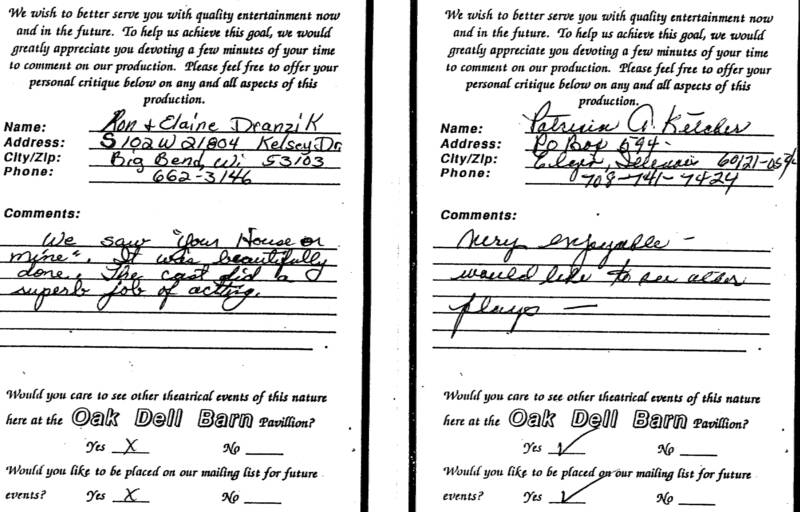 We wish to better serve you with quality entertainment now
and in the future. To help us achieve this goal, we would
greatly appreciate you devoting a few minutes of your time
to comment on our production. Please feel free to offer your
personal critique below on any and all aspects of this
production.
Name: Ron + Elaine Dranzik
Address: S102W21804 Kelsey Dr
City/Zip: Big Bend, Wi. 53103
Phone: 662-3146
Comments:
We saw "Your House or
mine". It was beautifully
done. The cast did a
superb job of acting.
Would you care to see other theatrical events of this nature
here at the Oak Dell Barn Pavillion?
Yes X No
Would you like to be placed on our mailing list for future
events? Yes X No
We wish to better serve you with quality entertainment now
and in the future. To help us achieve this goal, we would
greatly appreciate you devoting a few minutes of your time
to comment on our production. Please feel free to offer your
personal critique below on any and all aspects of this
production.
Name: Patricia A. Ketcher
Address: PO Box 594-
City/Zip: Elgin, Illinois 60121-0594
Phone: 708-741-7424
Comments:
Very enjoyable -
would like to see other
plays -
Would you care to see other theatrical events of this nature
here at the Oak Dell Barn Pavillion?
Yes ✓ No
Would you like to be placed on our mailing list for future
events? Yes ✓ No